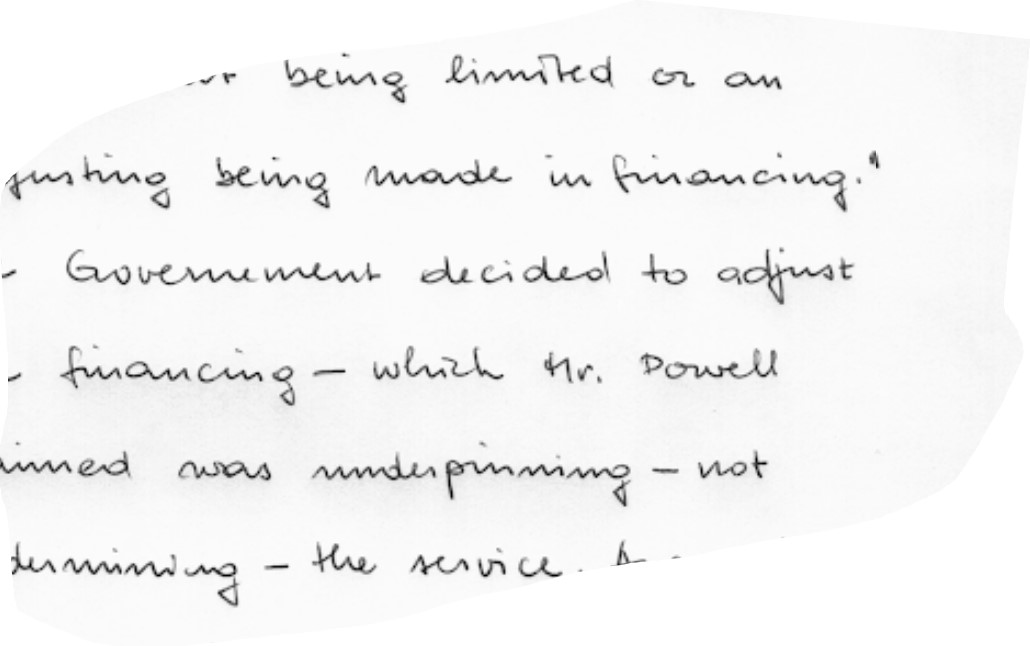 being limited or an
justing being made in financing."
Governement decided to adjust
financing - which Mr. Powell
aimed was underpinning - not
dermining - the service.